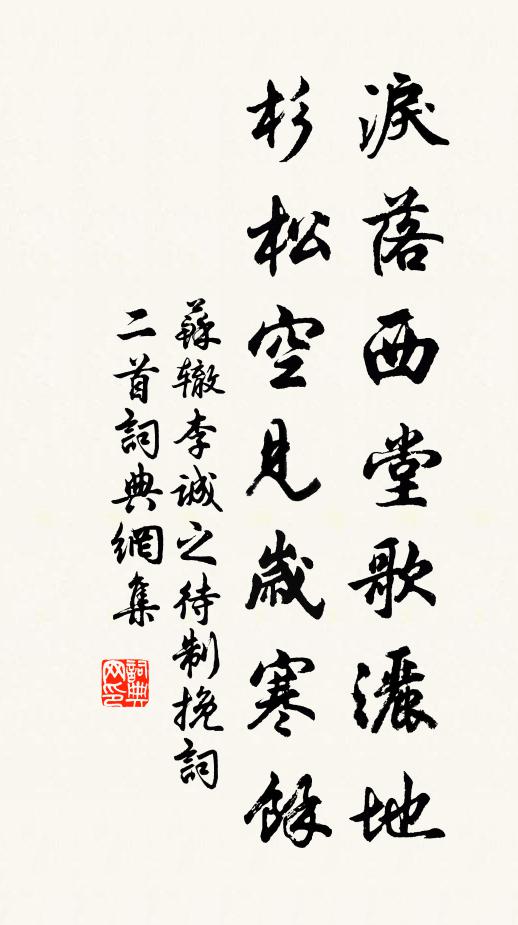 淚落西堂歌灑地
杉松空見歲寒餘
蘇辙李誠之待制挽詞
二首詞典網集
詞典网印